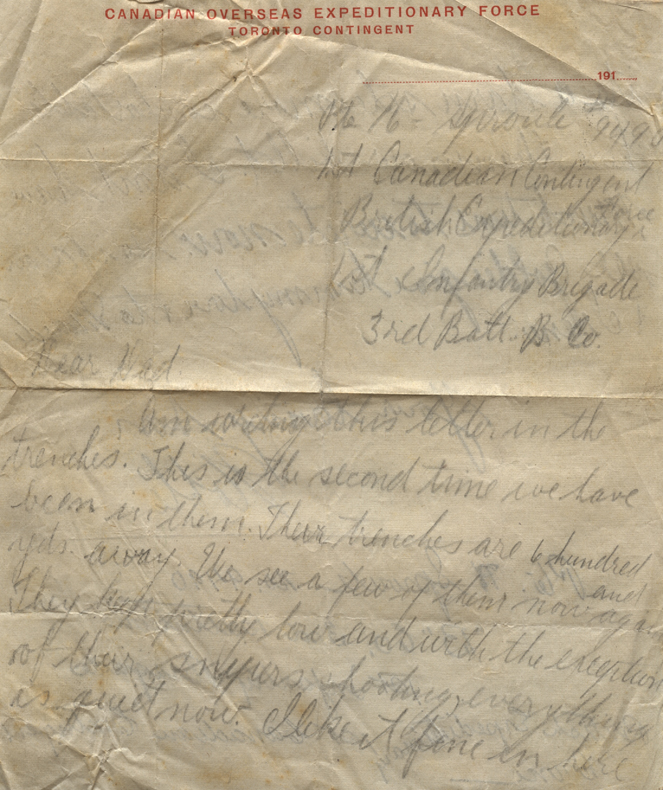 CANADIAN OVERSEAS EXPEDITIONARY FORCE
TORONTO CONTINGENT
191
Pte H. Sproule
1st Canadian Contingent
British Expeditionary Force
1st Infantry Brigade
3rd Batt. B Co.
Dear
Am writing this letter in the
trenches. This is the second time we have
been in them. Their trenches are 6 hundred
yds. away. We see a few of them now and again
They keep pretty low and with the exception
of their snipers shooting, everything
is quiet now. I like it fine in here